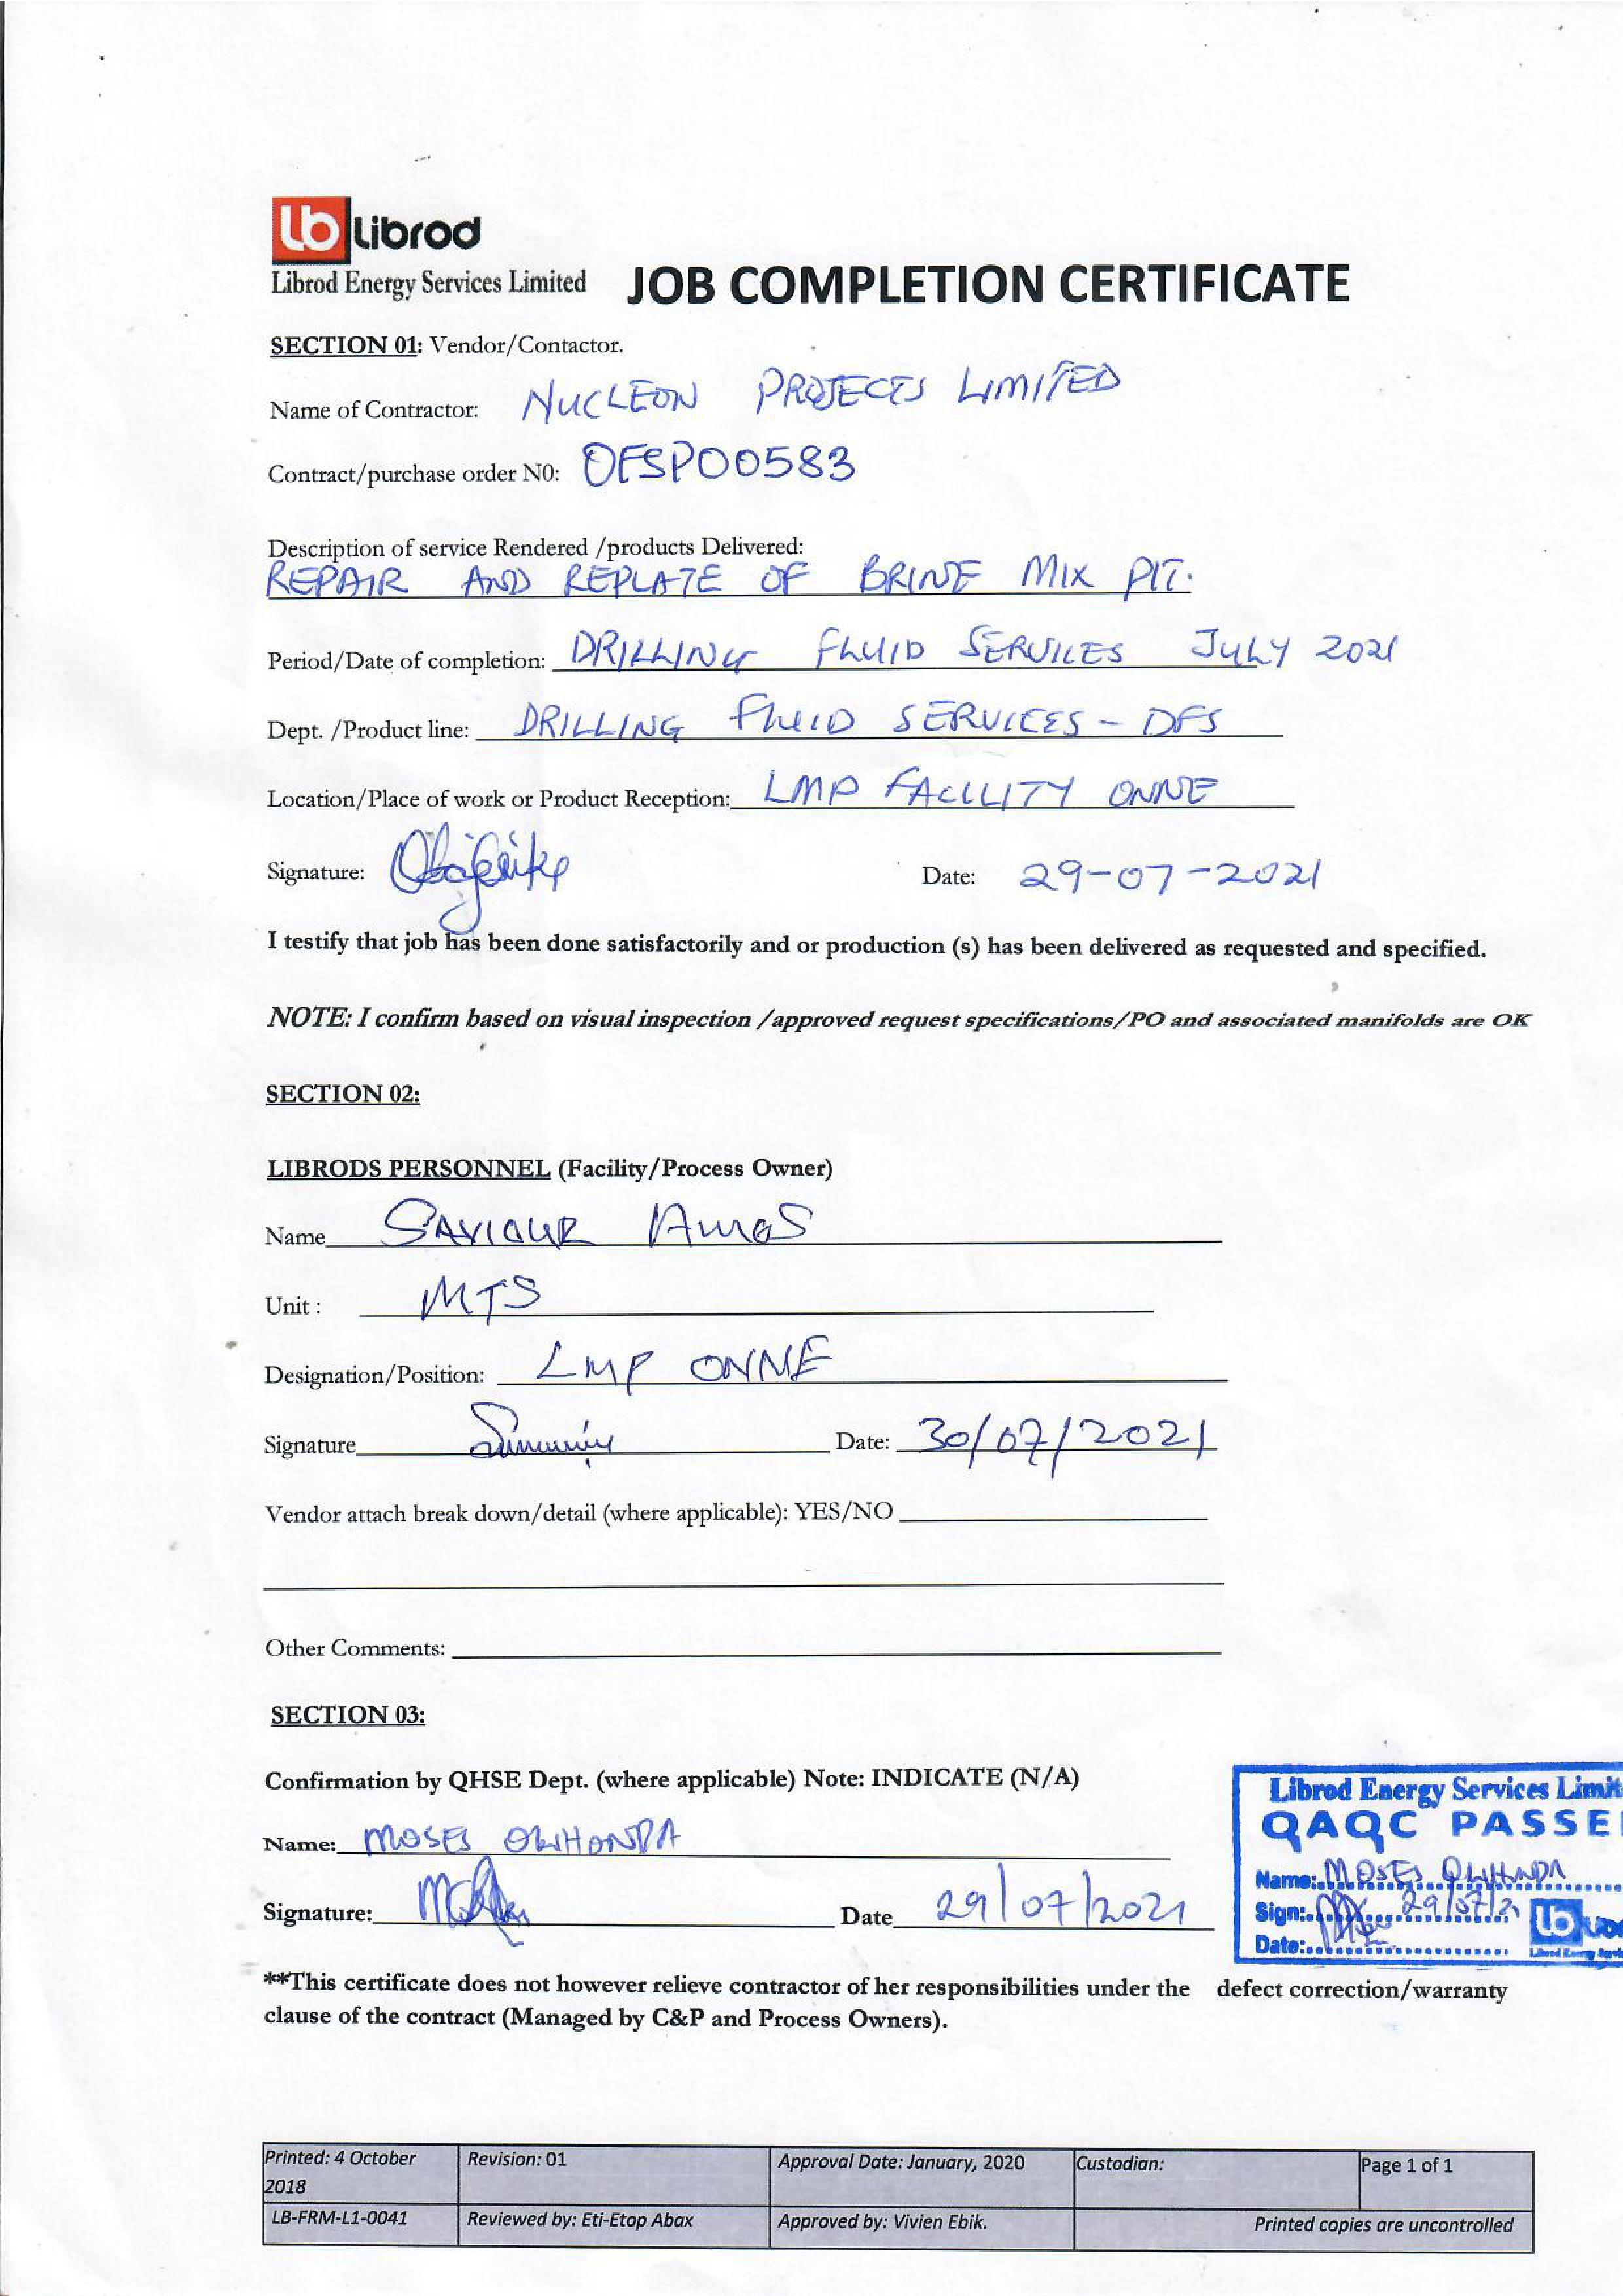 lb Librod
Librod Energy Services Limited
JOB COMPLETION CERTIFICATE
SECTION 01: Vendor/Contactor.
Name of Contractor: NUCLEON PROJECTS LIMITED
Contract/purchase order N0: OFSPO0583
Description of service Rendered /products Delivered:
REPAIR AND REPLATE OF BRINE MIX PIT.
Period/Date of completion: DRILLING FLUID SERVICES JULY 2021
Dept. /Product line: DRILLING FLUID SERVICES - DFS
Location/Place of work or Product Reception: LMP FACILITY ONNE
Signature: Date: 29-07-2021
I testify that job has been done satisfactorily and or production (s) has been delivered as requested and specified.
NOTE: I confirm based on visual inspection /approved request specifications/PO and associated manifolds are OK
SECTION 02:
LIBRODS PERSONNEL (Facility/Process Owner)
Name SAVIOUR AMOS
Unit : MTS
Designation/Position: LMP ONNE
Signature Date: 30/07/2021
Vendor attach break down/detail (where applicable): YES/NO
Other Comments:
SECTION 03:
Confirmation by QHSE Dept. (where applicable) Note: INDICATE (N/A)
Name: MOSES OLIHONDA
Signature: Date 29/07/2021
Librod Energy Services Limit
QAQC PASSE
Name: MOSES
Sign: 29/07/21
Date:
lb
**This certificate does not however relieve contractor of her responsibilities under the defect correction/warranty
clause of the contract (Managed by C&P and Process Owners).
Printed: 4 October 2018 Revision: 01 Approval Date: January, 2020 Custodian: Page 1 of 1
LB-FRM-L1-0041 Reviewed by: Eti-Etop Abax Approved by: Vivien Ebik. Printed copies are uncontrolled